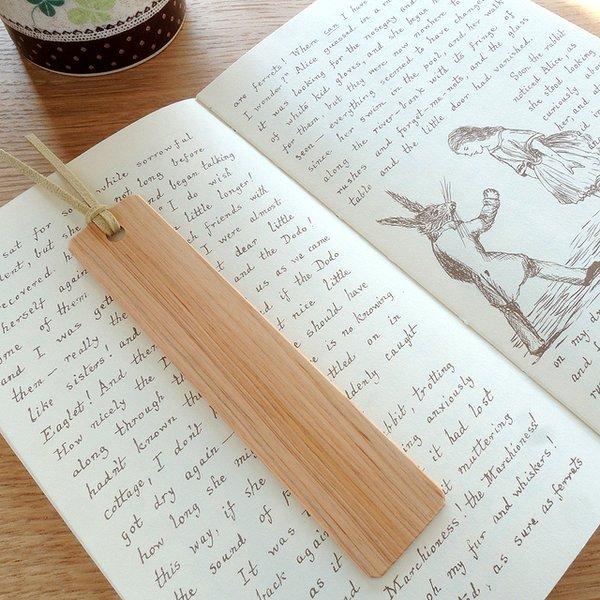 sat for so while sorrowful
ent, but she not long before
recovered he and began talking
herself again I do wish
ome of them little longer!
and I was gett ch friends with
them — really the I were almost
like sisters! and t dear little
Eaglet! And then and the Dodo!
How nicely the D us as we came
along through if the Dodo
hadn't known th t nice little
cottage, I don't k should have
got dry again— is no knowing
how long she mig ttled on in
this way, if she ddenly caught
the sound of
It was bbit, trotting
back again ng anxiously
as it it had lost
muttering
Marchioness! the Marchioness!
oh my fur and whiskers!
d, as sure as ferrets
are ferrets! Where can I have
I wonder?" Alice guessed in a m
it was looking for the nosegay and
of white kid gloves, and she began t
for them, but they were now nowhere to
seen — everything seemed to have changed
since her swim in the pool, and her walk
along the river-bank with its fringe of
rushes and forget-me-nots, and the glass
table and the little door had vanished.
Soon the rabbit
noticed Alice, as
she stood looking
curiously about
her, and at
on my dr